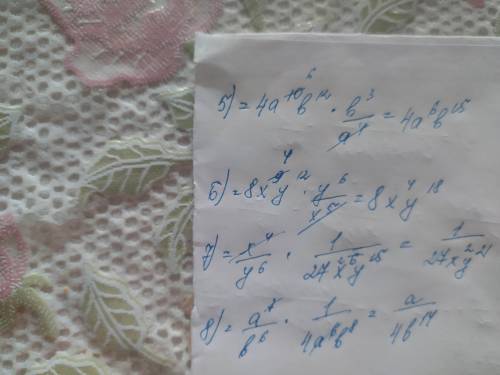 5) = 4a^{10}b^{12} · b^3/a^4 = 4a^6b^{15}
6) = 8x^9y^{12} · y^6/x^5 = 8x^4y^{18}
7) = x^4/y^6 · 1/(27x^6y^{15}) = 1/(27x^2y^{21})
8) = a^7/b^6 · 1/(4a^6b^8) = a/(4b^{14})